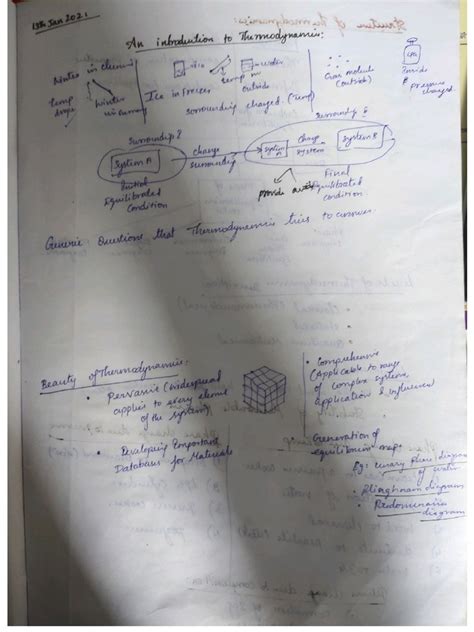 13th Jan 2021
An introduction to Thermodynamics:
Winter in chennai
temp drops
winter in summer
ice
Ice in freezer
temp in
water
outside
surrounding changed. (Temp)
Gas molecule
(outside)
LPG
Inside
& pressure
changed
Surrounding 1
System A
Initial
Equilibrated
Condition
change
surrounding
surrounding 2
System A
Change
System
System B
provide
Final
Equilibrated
condition
Generic Questions that Thermodynamics tries to answer.
Beauty of Thermodynamics:
• Pervasive (widespread
applies to every element
of the system)
• Developing Important
Databases for Materials
• Comprehensive
(Applicable to range
of complex systems,
application & influence)
• Generation of
equilibrium map
Eg: unary phase diagram
of water
• Ellingham diagram
• Predominance
diagram